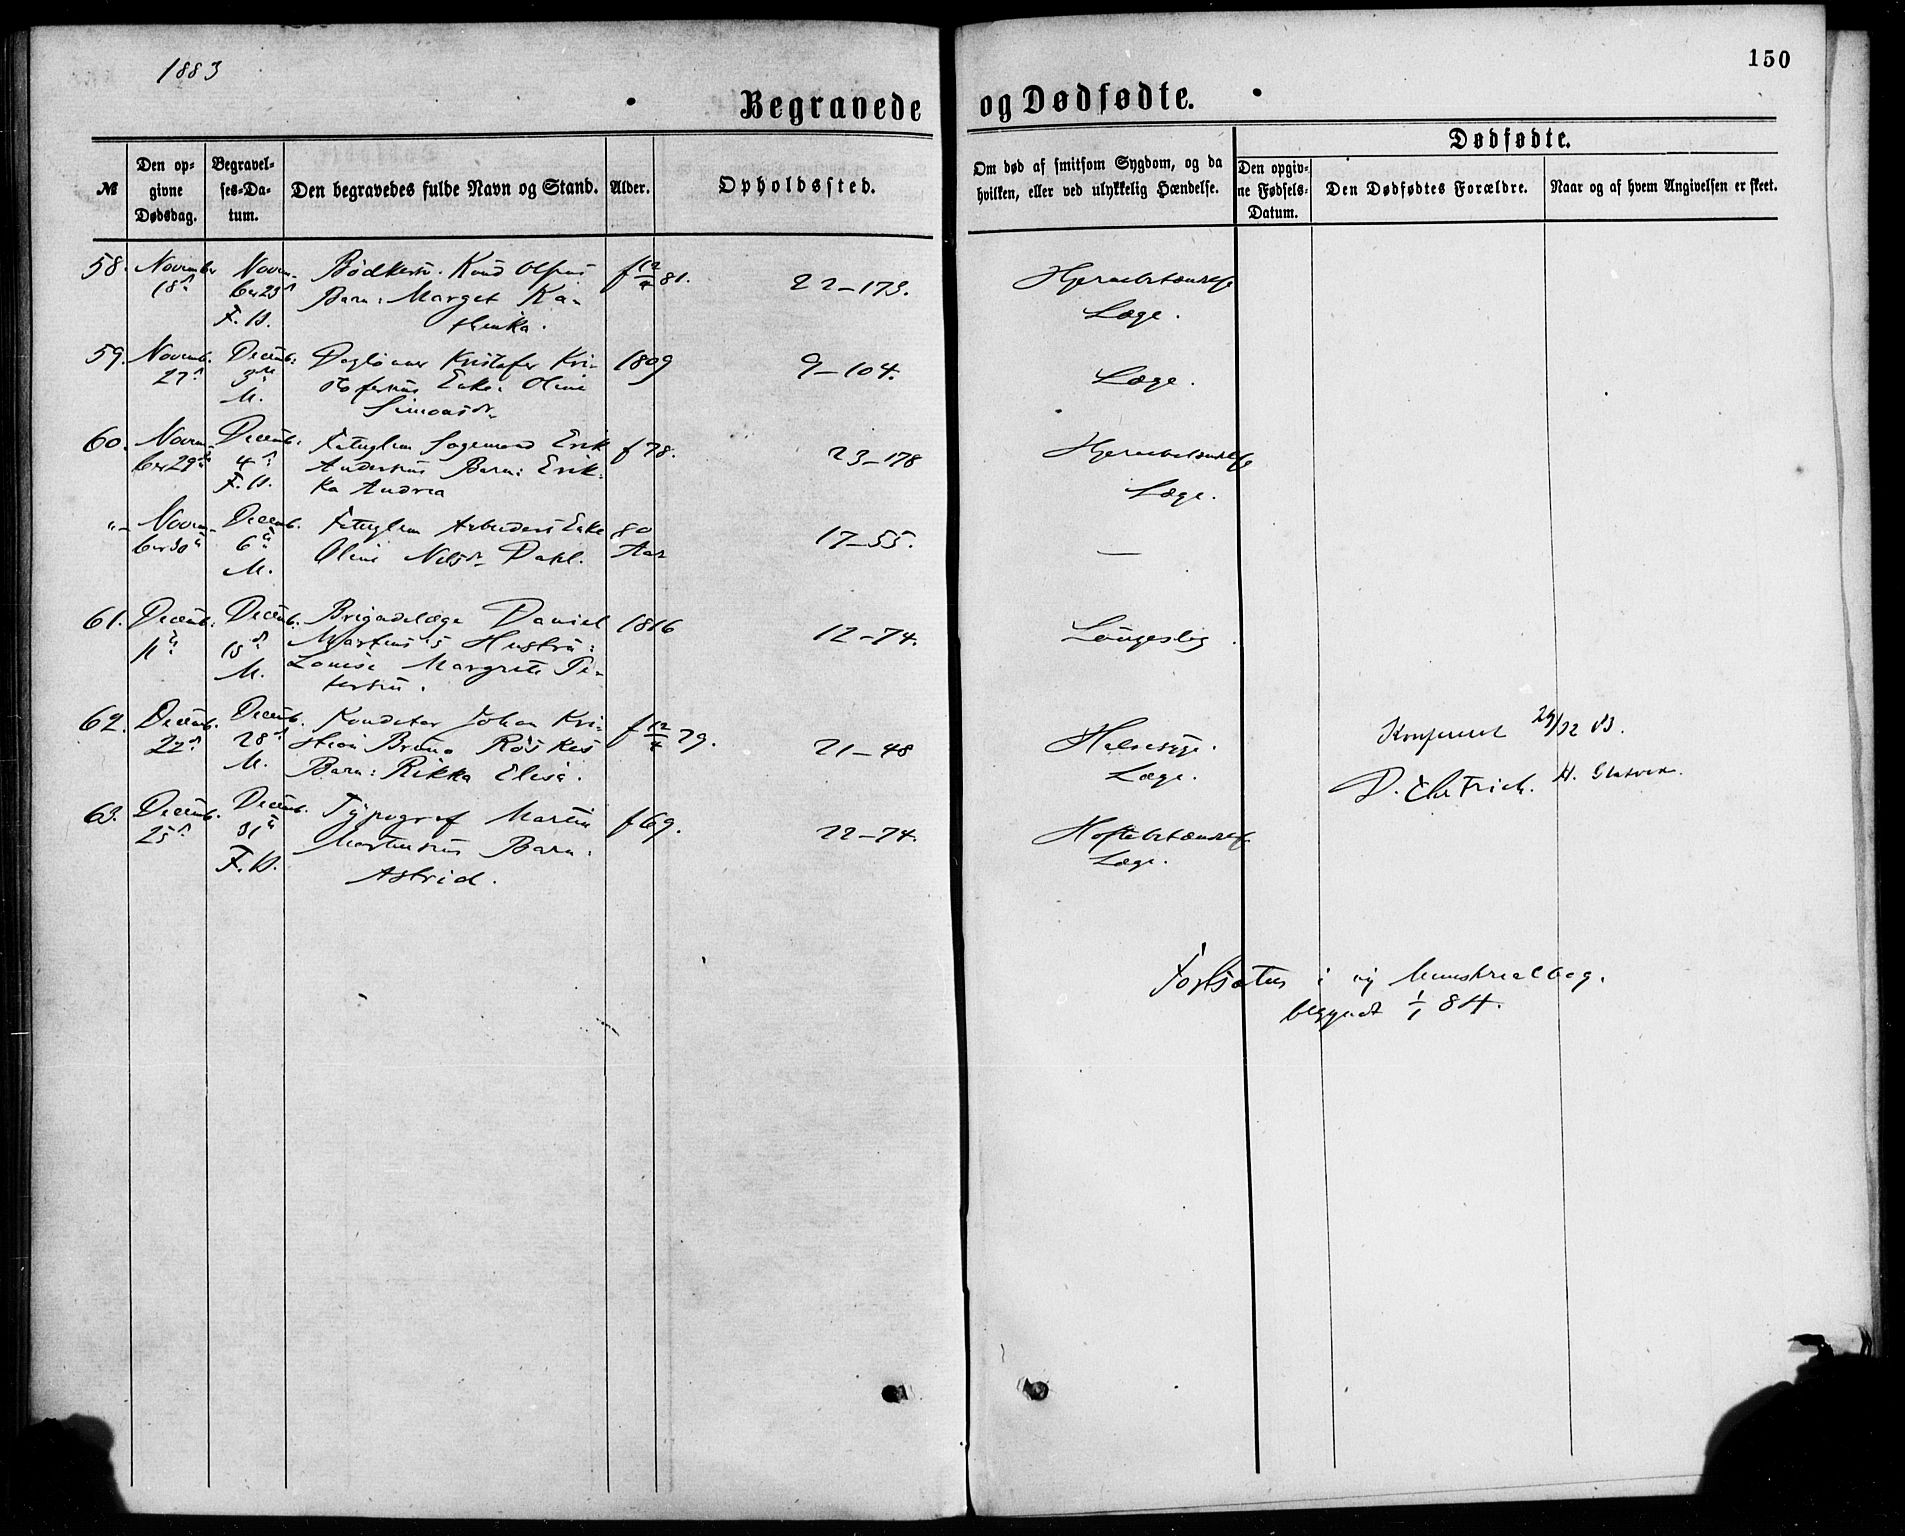 1883
150
Begravede og Dødfødte.
№
Den op-
givne
Dødsdag.
Begravel-
ses-Da-
tum.
Den begravedes fulde Navn og Stand.
Alder.
Opholdssted.
Om død af smitsom Sygdom, og da
hvilken, eller ved ulykkelig Hændelse.
Dødfødte.
Den opgiv-
ne Fødsels-
Datum.
Den Dødfødtes Forældre.
Naar og af hvem Angivelsen er skeet.
58. November
18
Novem-
ber 23
Bødkersv. Knud Olsens
Barn: Marget Ka-
thinka.
f 12/4 81.
22–173.
Hjernebetændelse
Læge.
59. Novemb.
27
Decemb:
3
M.
Dagløner Kristofer Kri-
stofersens Enke: Oline
Simonsdr
1809
9–104.
Læge.
60. Novem-
ber 29
Decemb:
4
Fattiglem Erik
Andersens Barn: Erik-
ka Andrea
f 78.
23–178
Hjernebetændelse
Læge.
"– Novem-
ber 30
Decemb.
6
M.
Fattiglem Arbeiders Enke
Oline Nilsdr Dahl.
80
Aar
17–55.
—
61. Decemb:
11
Decemb:
15
M.
Brigadelæge Daniel
Martens's Hustru:
Louise Margrete Pe-
tersen.
1816
12–74.
Lungeslag
62. Decemb.
22
Decemb.
28
M.
Konditor Johan Kri-
stian Bruno Röskes
Barn: Rikka Elisa.
f 12/4 79.
21–48
Halssyge.
Læge.
Konfereret 29/12 83.
63. Decemb.
25
Decemb.
31
Typograf Martin
Mortensens Barn:
Astrid.
f 69.
22–74.
Hoftebetændelse
Læge.
Fortsættes i ny Ministerialbog.
begyndt 1/1 84.